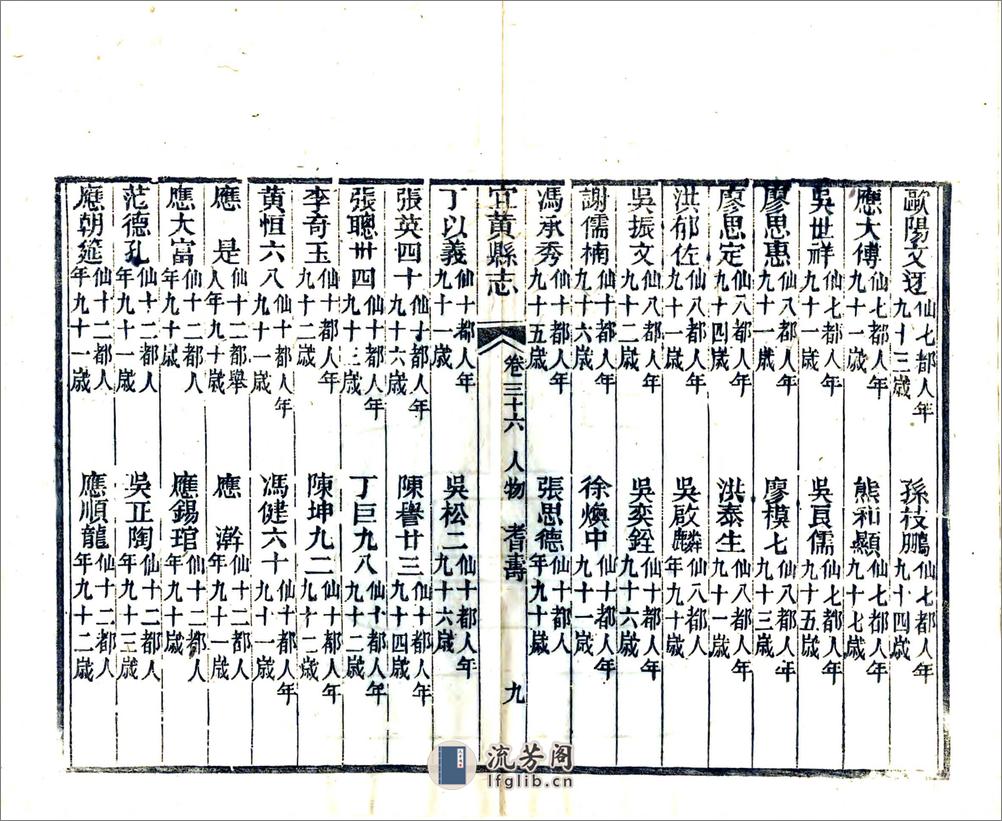 歐陽文迓仙七都人年九十三歲 孫枝鵬仙七都人年九十四歲
應大傅仙七都人年九十一歲 熊和顯仙七都人年九十七歲
吳世祥仙七都人年九十一歲 吳良儒仙七都人年九十五歲
廖思惠仙八都人年九十一歲 廖模七仙八都人年九十三歲
廖思定仙八都人年九十四歲 洪泰生仙八都人年九十一歲
洪郁佐仙八都人年九十一歲 吳啟麟仙八都人年九十歲
吳振文仙八都人年九十二歲 吳奕銓仙十都人年九十六歲
謝儒楠仙十都人年九十六歲 徐煥中仙十都人年九十一歲
馮承秀仙十都人年九十五歲 張思德仙十都人年九十歲
宜黃縣志 卷三十六 人物 耆壽 九
丁以義仙十都人年九十一歲 吳松二仙十都人年九十六歲
張英四十仙十都人年九十六歲 陳譽廿三仙十都人年九十四歲
張聰卅四仙十都人年九十三歲 丁巨九八仙十都人年九十二歲
李奇玉仙十都人年九十二歲 陳坤九二仙十都人年九十二歲
黃恒六八仙十都人年九十一歲 馮健六十仙十都人年九十一歲
應是仙十二都舉人年九十歲 應澣仙十二都人年九十一歲
應大富仙十二都人年九十歲 應錫琯仙十二都人年九十歲
茫德孔仙十二都人年九十一歲 吳正陶仙十二都人年九十三歲
應朝筵仙十二都人年九十一歲 應順龍仙十二都人年九十二歲
流芳阁
lfglib.cn